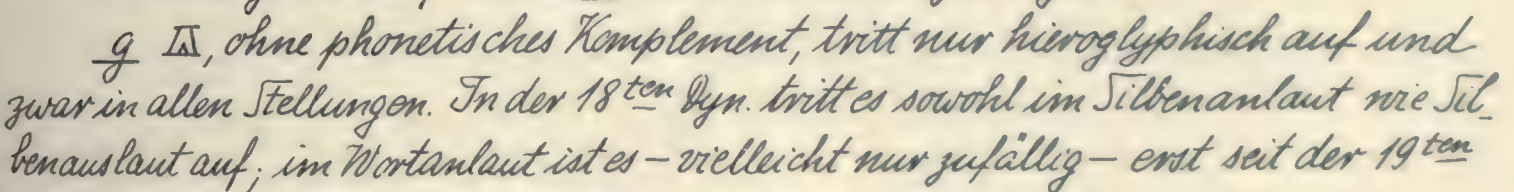 g 𓎼, ohne phonetisches Komplement, tritt nur hieroglyphisch auf und
zwar in allen Stellungen. In der 18ten Dyn. tritt es sowohl im Silbenanlaut wie Sil-
benauslaut auf; im Wortanlaut ist es – vielleicht nur zufällig – erst seit der 19ten